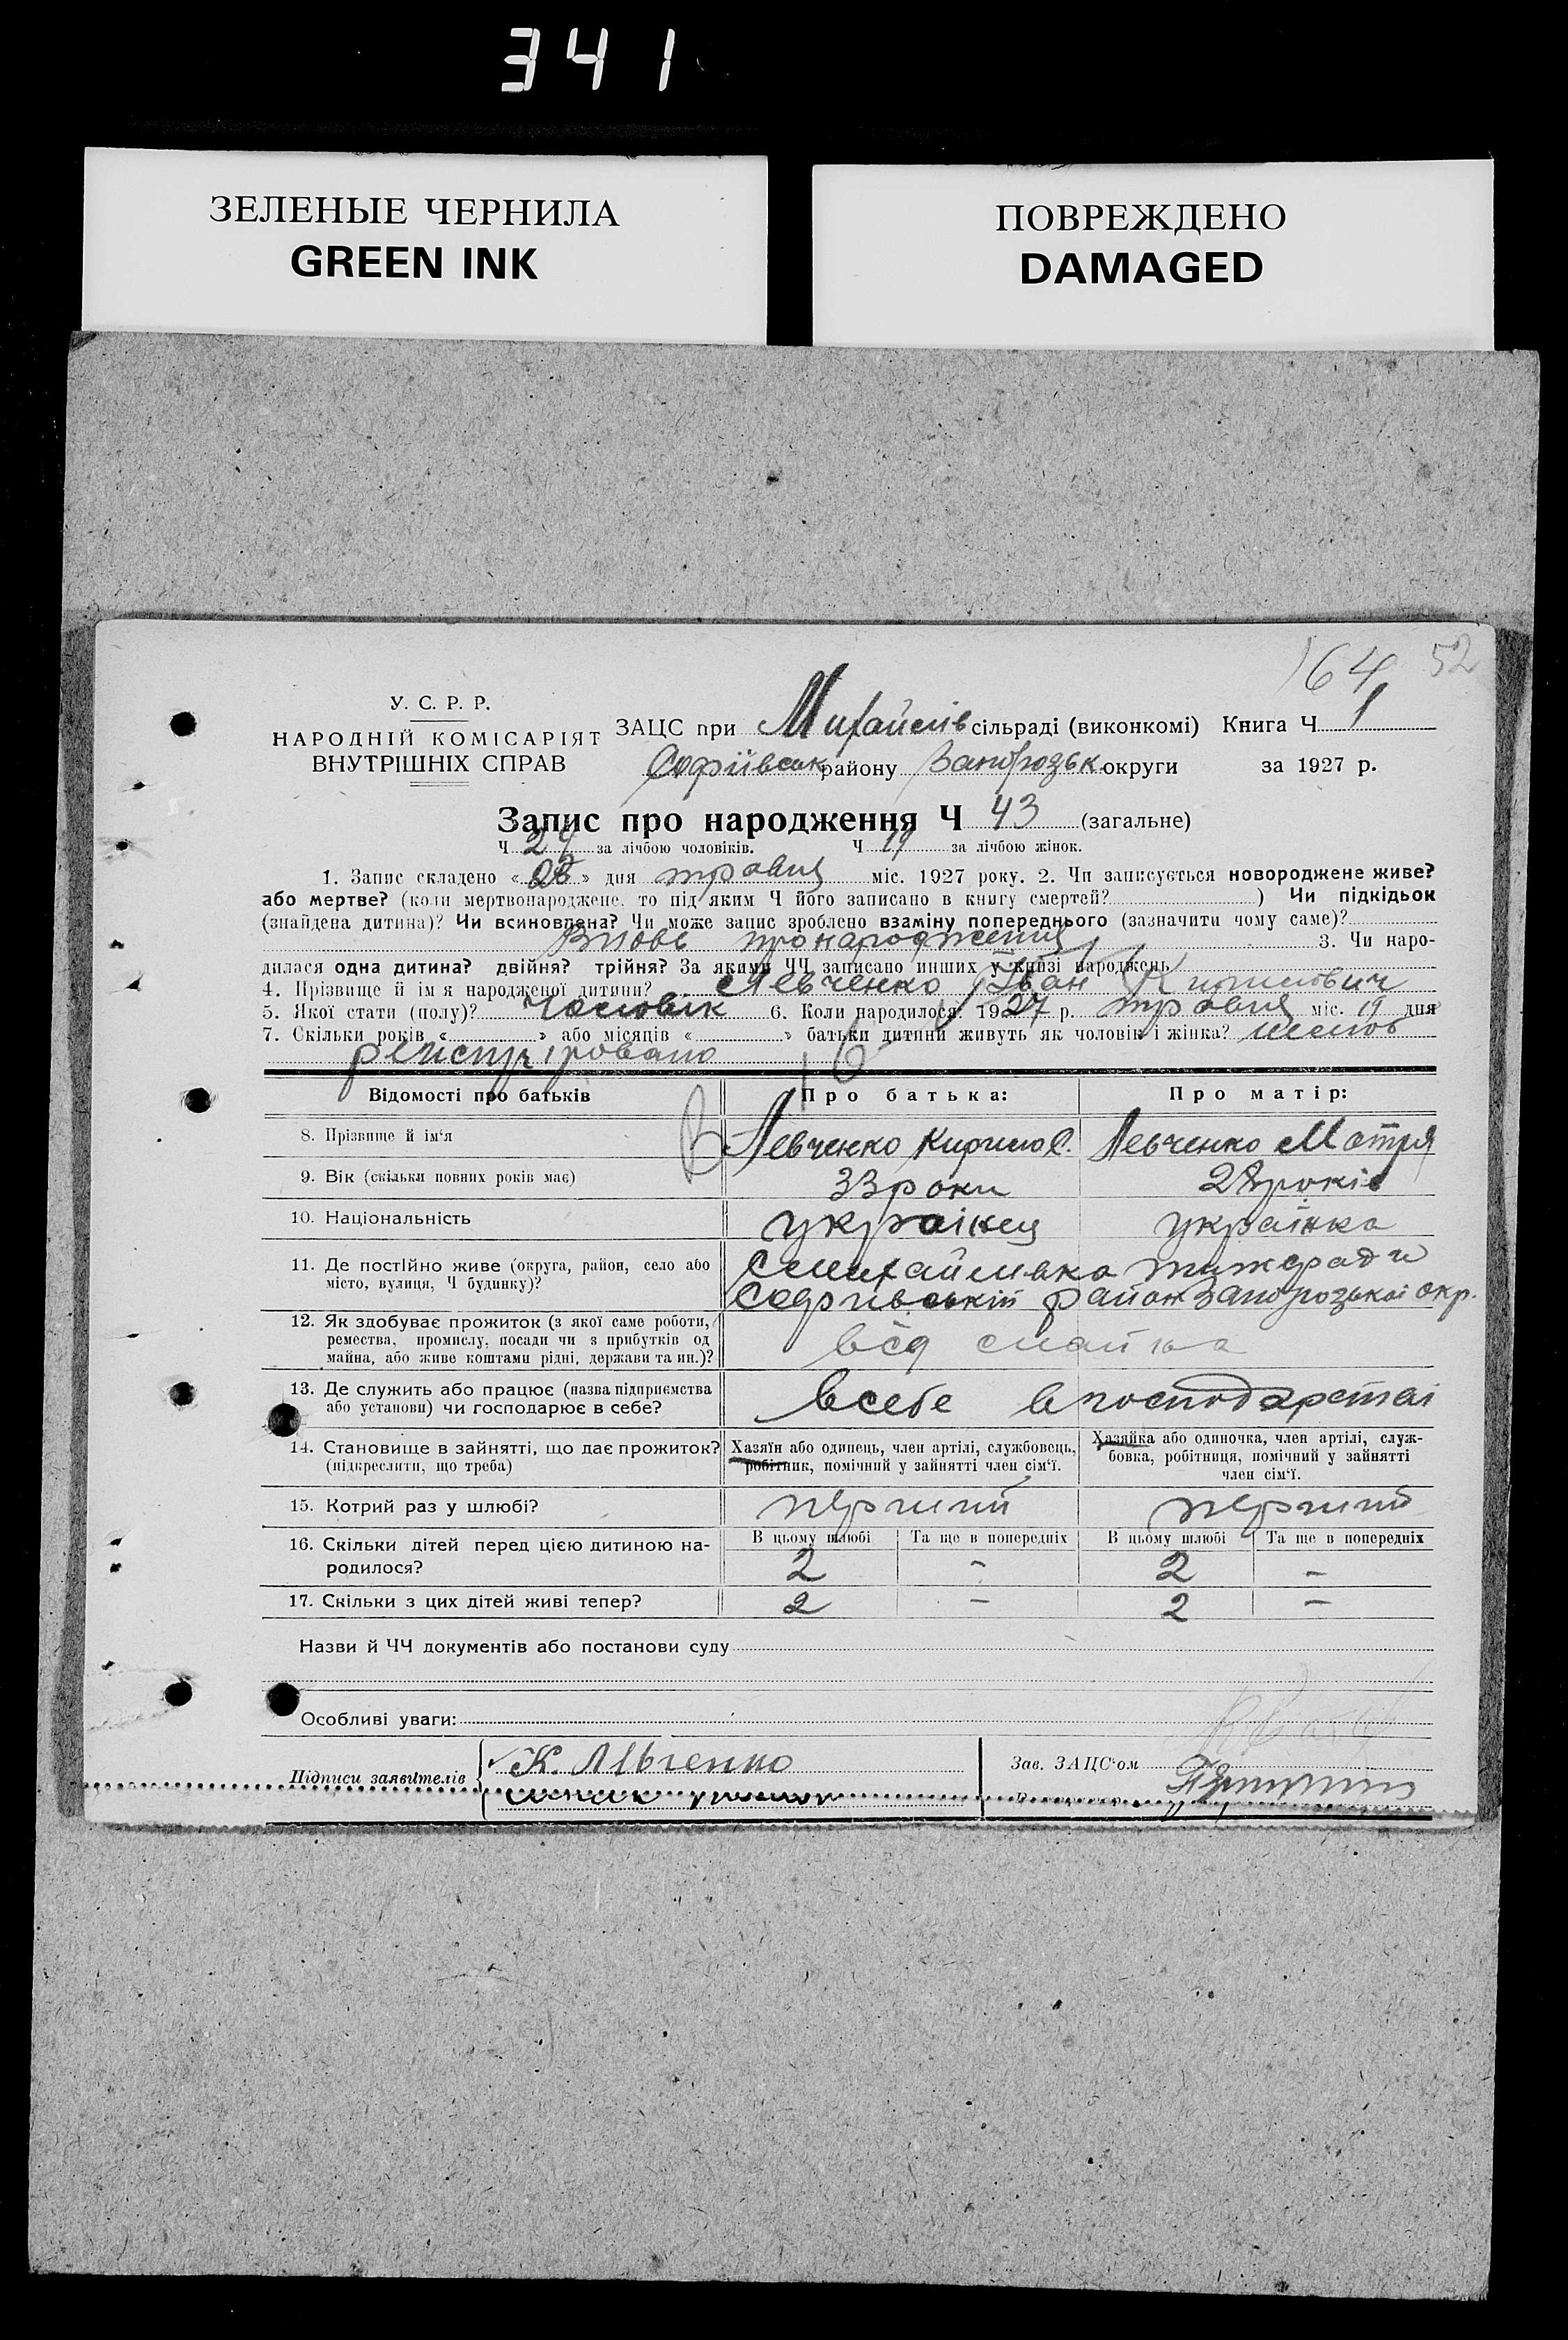 341
ЗЕЛЕНЫЕ ЧЕРНИЛА
GREEN INK
ПОВРЕЖДЕНО
DAMAGED
164 52
У. С. Р. Р.
НАРОДНІЙ КОМІСАРІЯТ
ВНУТРІШНІХ СПРАВ
ЗАЦС при Михайлів сільраді (виконкомі) Книга Ч 1
Софіївськ району Запорозьк округи за 1927 р.
Запис про народження Ч 43 (загальне)
Ч 24 за лічбою чоловіків. Ч 19 за лічбою жінок.
1. Запис складено « » дня травня міс. 1927 року. 2. Чи записується новороджене живе?
або мертве? (коли мертвонароджене, то під яким Ч його записано в книгу смертей? ) Чи підкідьок
(знайдена дитина)? Чи всиновлена? Чи може запис зроблено взаміну попереднього (зазначити чому саме)?
Вновь про народження 3. Чи наро-
дилася одна дитина? двійня? трійня? За якими ЧЧ записано инших у книзі народжень
4. Прізвище й ім'я народженої дитини? Левченко Іван Кирилович
5. Якої стати (полу)? Чоловік 6. Коли народилося: 1927 р. травня міс. 19 дня
7. Скільки років « » або місяців « » батьки дитини живуть як чоловік і жінка? шлюб
регистріровано
Відомості про батьків
Про батька:
Про матір:
8. Прізвище й ім'я Левченко Кирило С. Левченко Мотря
9. Вік (скільки повних років має) 33 роки 28 років
10. Національність українец українка
11. Де постійно живе (округа, район, село або
місто, вулиця, Ч будинку)?
С Михайливка
Софиівській район Запорозькоі окр.
12. Як здобуває прожиток (з якої саме роботи,
ремества, промислу, посади чи з прибутків од
майна, або живе коштами рідні, держави та ин.)?
від
13. Де служить або працює (назва підприємства
або установи) чи господарює в себе?
в себе в господарстві
14. Становище в зайнятті, що дає прожиток?
(підкреслити, що треба)
Хазяїн або одинець, член артілі, службовець,
робітник, помічний у зайнятті член сім'ї.
Хазяйка або одиночка, член артілі, служ-
бовка, робітниця, помічний у зайнятті
член сім'ї.
15. Котрий раз у шлюбі? перший перший
16. Скільки дітей перед цією дитиною на-
родилося?
В цьому шлюбі Та ще в попередніх В цьому шлюбі Та ще в попередніх
2 - 2 -
17. Скільки з цих дітей живі тепер? 2 - 2 -
Назви й ЧЧ документів або постанови суду
Особливі уваги:
Підписи заявителів К. Лівченко
Зав. ЗАЦС'ом